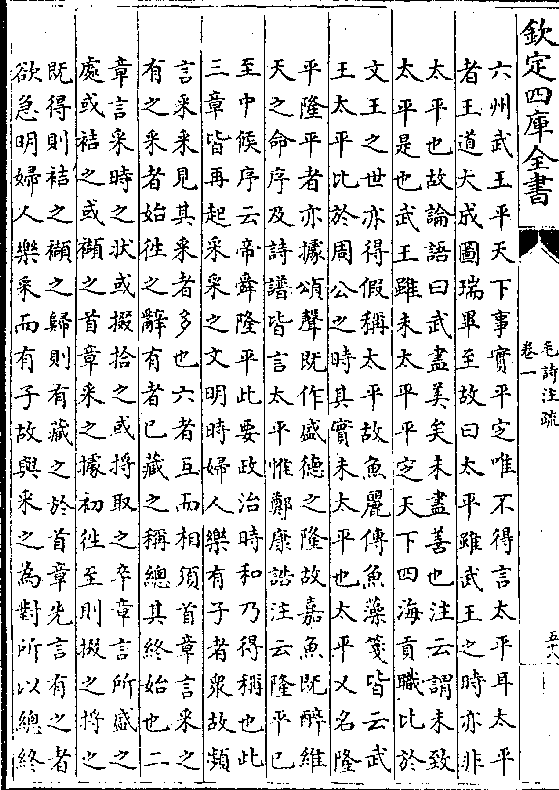 欽定四庫全書
毛詩注疏
卷一
五十八
六州武王平天下事實平定唯不得言太平耳太平
者王道大成圖瑞畢至故曰太平雖武王之時亦非
太平也故論語曰武盡美矣未盡善也注云謂未致
太平是也武王雖未太平平定天下四海貢職比於
文王之世亦得假稱太平故魚麗傳魚藻箋皆云武
王太平比於周公之時其實未太平也太平又名隆
平隆平者亦據頌聲既作盛德之隆故嘉魚既醉維
天之命序及詩譜皆言太平惟鄭康誥注云隆平已
至中候序云帝舜隆平此要政治時和乃得稱也此
三章皆再起采采之文明時婦人樂有子者衆故頻
言采采見其采者多也六者互而相須首章言采之
有之采者始往之辭有者已藏之稱總其終始也二
章言采時之狀或掇拾之或捋取之卒章言所盛之
處或袺之或襭之首章采之據初往至則掇之捋之
既得則袺之襭之歸則有藏之於首章先言有之者
欲急明婦人樂采而有子故與采之為對所以總終